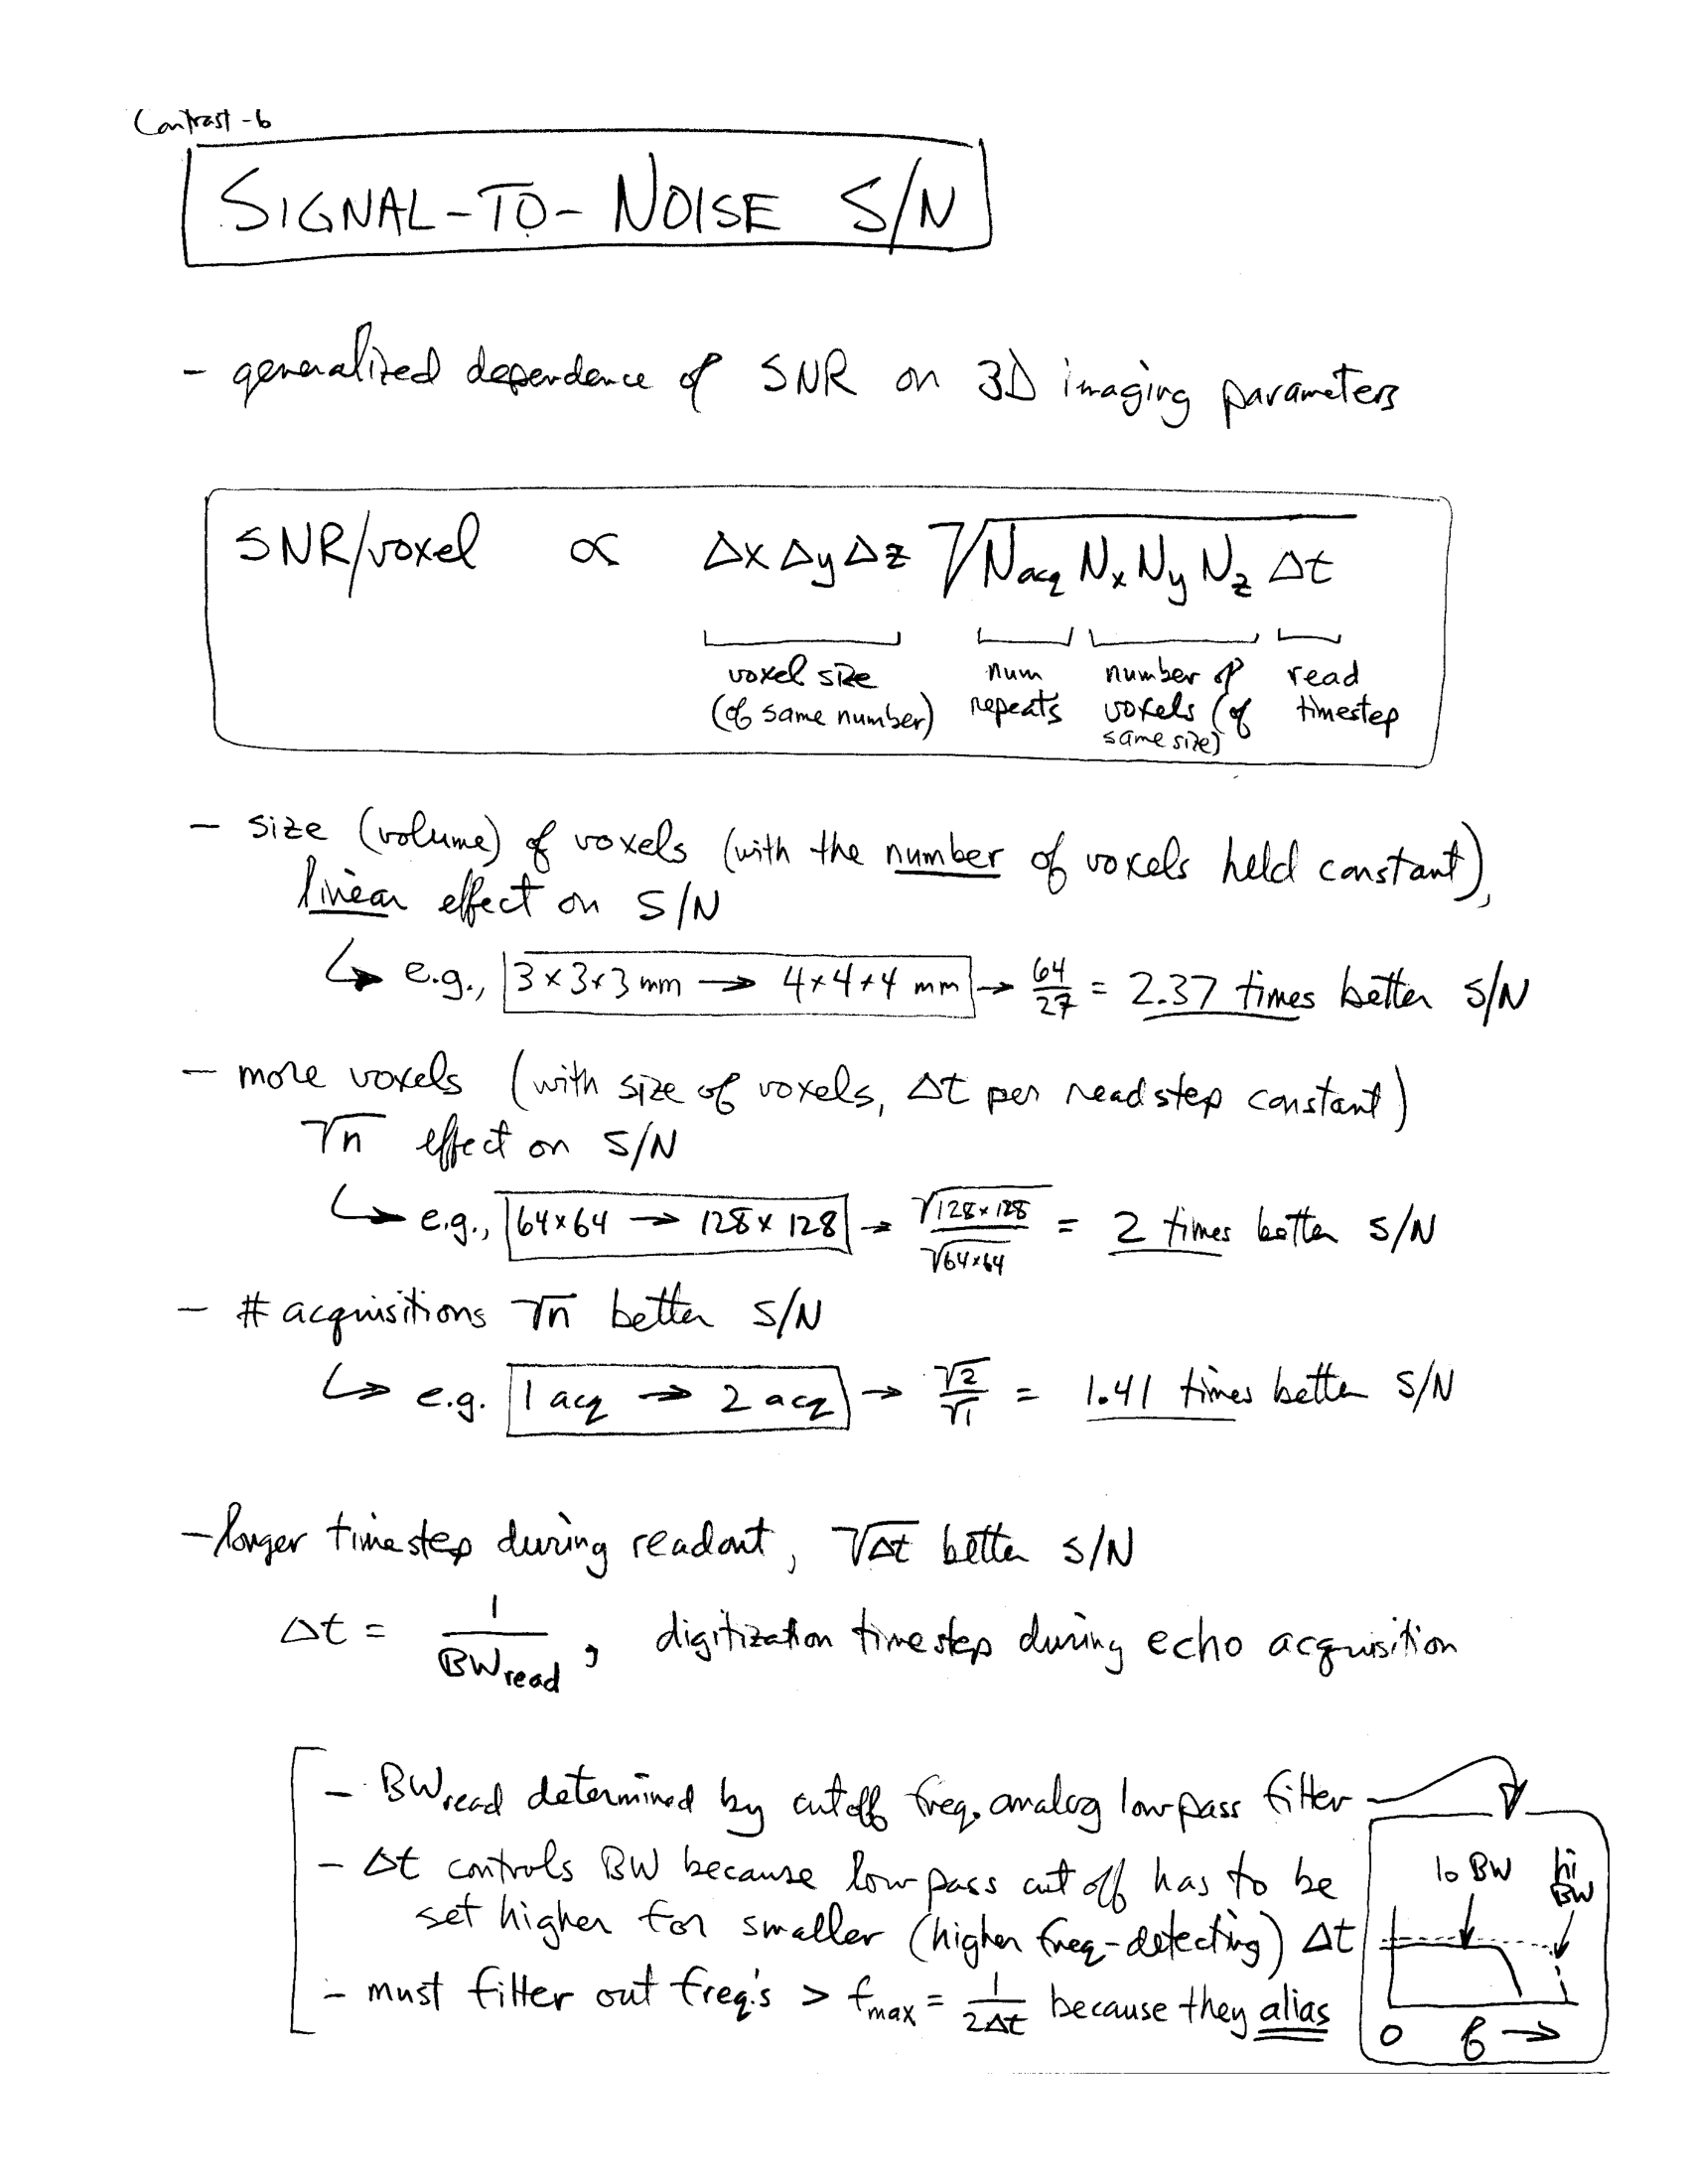 Contrast-6
SIGNAL-TO-NOISE S/N
- generalized dependence of SNR on 3D imaging parameters
SNR/voxel ∝ Δx Δy Δz √(Nacq Nx Ny Nz Δt)
voxel size num number of read
(of same number) repeats voxels (of timestep
same size)
- size (volume) of voxels (with the number of voxels held constant),
linear effect on S/N
↳ e.g., 3×3×3 mm → 4×4×4 mm → 64/27 = 2.37 times better S/N
- more voxels (with size of voxels, Δt per read step constant)
√n effect on S/N
↳ e.g., 64×64 → 128×128 → √128×128/√64×64 = 2 times better S/N
- # acquisitions √n better S/N
↳ e.g. 1 acq → 2 acq → √2/√1 = 1.41 times better S/N
- longer timestep during readout, √Δt better S/N
Δt = 1/BWread, digitization timestep during echo acquisition
- BWread determined by cutoff freq. analog lowpass filter
- Δt controls BW because lowpass cutoff has to be
set higher for smaller (higher freq-detecting) Δt
- must filter out freq's > fmax = 1/2Δt because they alias
lo BW hi
BW
0 f →